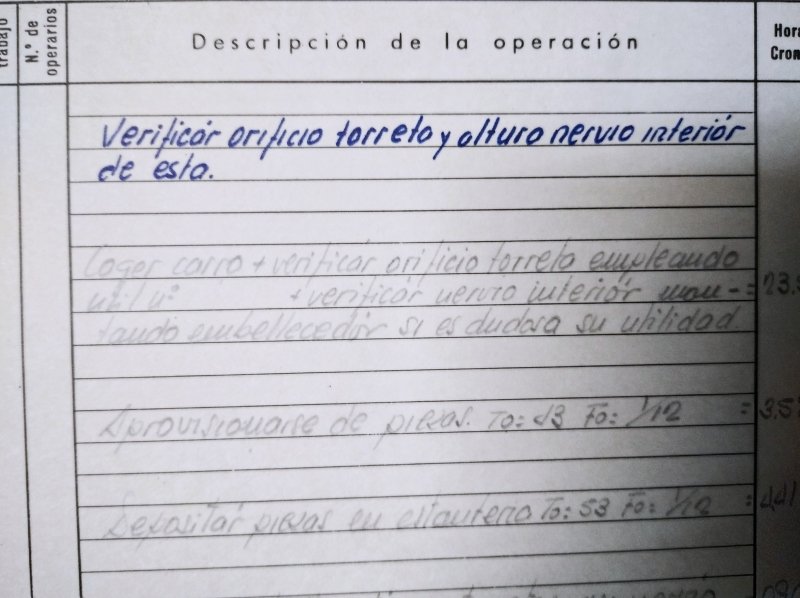 trabajo
N.º de operarios
Descripción de la operación
Hora
Cron
Verificár orificio torreta y altura nervio interiór
de ésta.
Coger carro + verificár orificio torreta empleando
útil nº + verificár nervio interiór mon- = 23.
tando embellecedór si es dudosa su utilidad
Aprovisionarse de piezas. To: 43 Fo: 1/12 = 3.5
Depositár piezas en estantería To: 53 Fo: 1/12 = 4,41